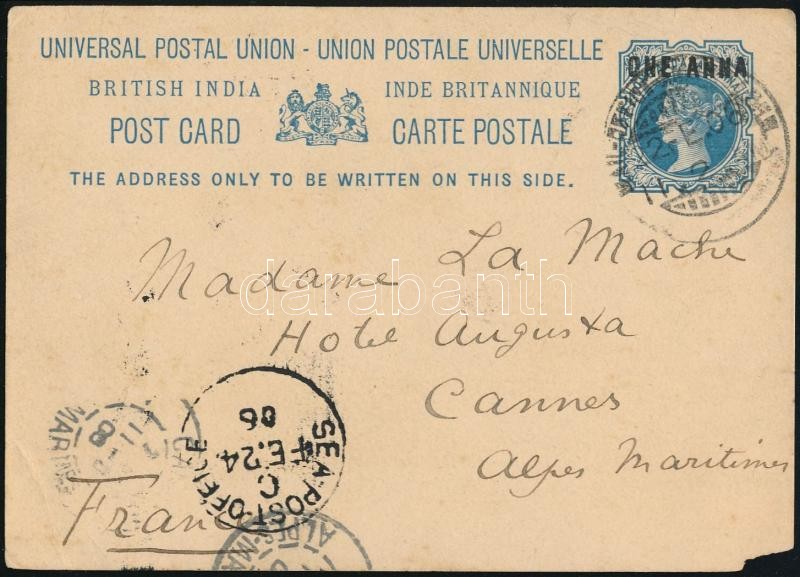 UNIVERSAL POSTAL UNION - UNION POSTALE UNIVERSELLE
BRITISH INDIA INDE BRITANNIQUE
POST CARD CARTE POSTALE
THE ADDRESS ONLY TO BE WRITTEN ON THIS SIDE.
ONE ANNA
Madame La Mache
Hotel Augusta
Cannes
Alpes Maritimes
France
SEA POST OFFICE
C
FE.24
06
ALPES-MA
darabanth